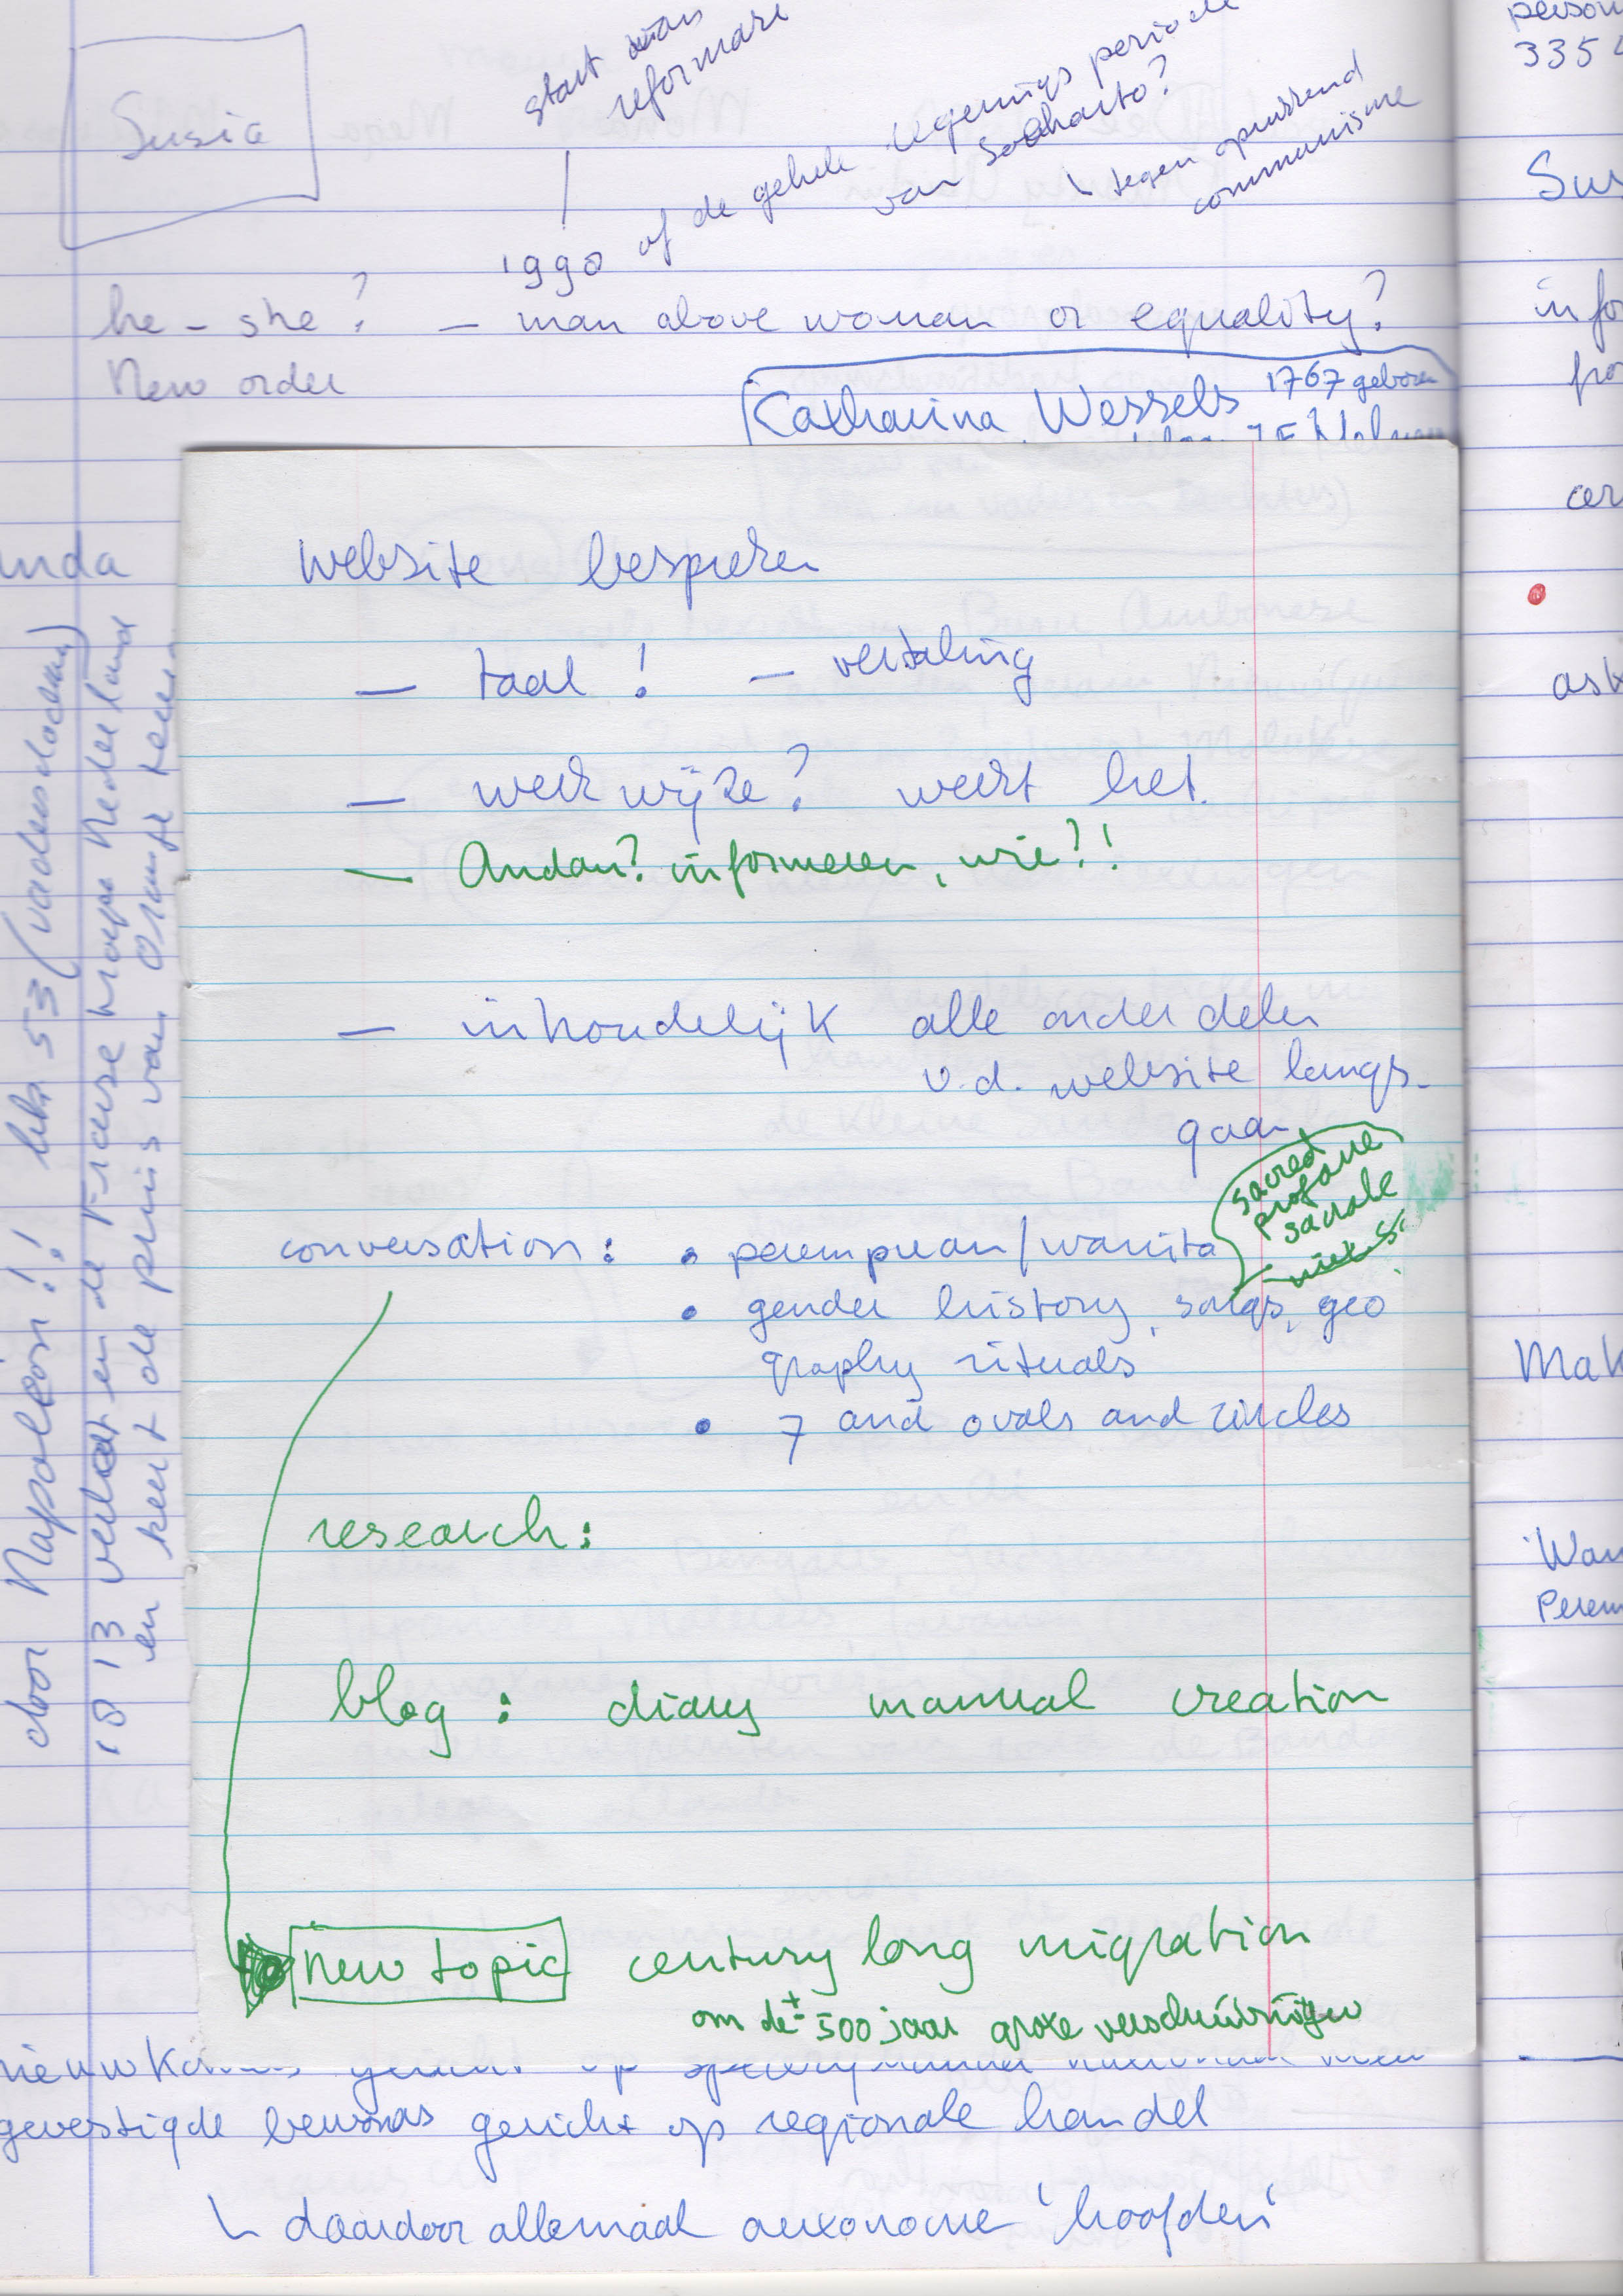 Susia
start van
reformasi
1990 of de gehele regerings periode
van Soeharto?
tegen opruiend
communisme
he - she? - man above woman or equality?
New order
Katharina Wessels 1767 geboren
website bespreken
- taal! - vertaling
- werkwijze? werkt het.
- Andan? informeren, wie?!
- inhoudelijk alle onderdelen
v.d. website langs-
gaan
sacred
profane
sacrale
conversation: • perempuan/wanita
• gender history, songs, geo
graphy rituals
• 7 and ovals and circles
research:
blog: diary manual creation
new topic century long migration
om de ± 500 jaar grote verschuivingen
gevestigde bewoners gericht op regionale handel
daardoor allemaal autonome 'hoofden'
door Napoleon!! blz 53 (vaders dochter)
1813 verlaten de Franse troepen Nederland
en keert de prins van Oranje terug
unda
person
335
Su
info
ask
Mak
Wan
Perem